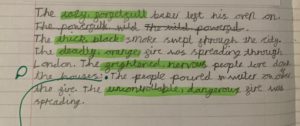 The ugly, forgetfull baker left his oven on.
The powerfull, wild The wild powerful
The thick, black smoke swept through the city.
The deadly, orange fire was spreading through
London. The frightened, nervous people tore down
the houses. The people poured water on
the fire. The uncontrollable, dangerous fire was
spreading.